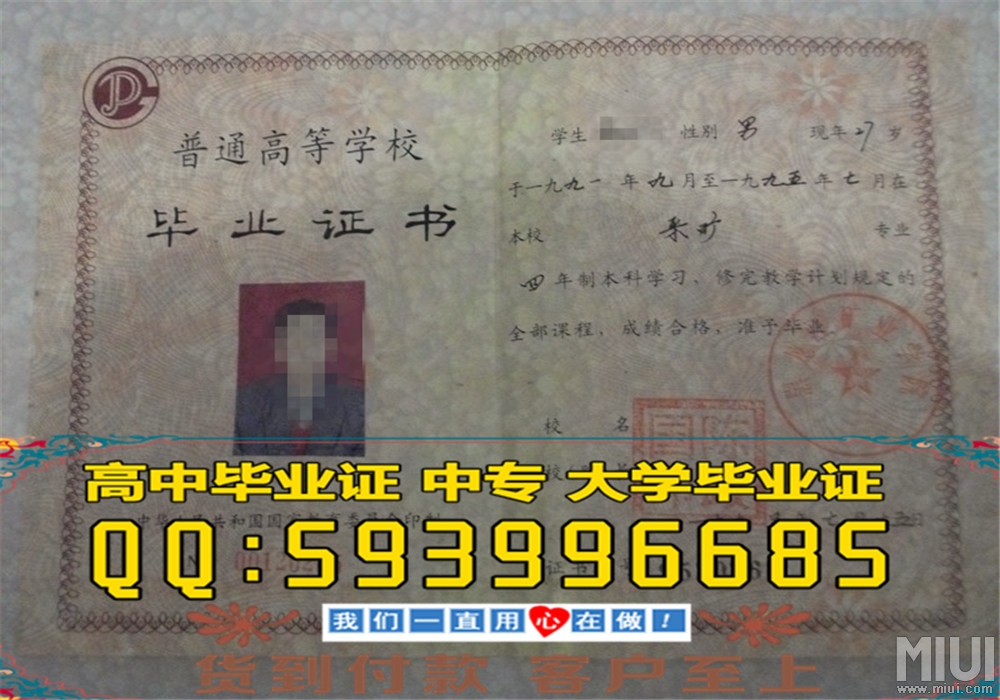 普通高等学校
毕业证书
学生 性别 男 现年 27 岁
于一九九一年九月至一九九五年七月在
本校 采矿 专业
四年制本科学习，修完教学计划规定的
全部课程，成绩合格，准予毕业。
校 名
高中毕业证 中专 大学毕业证
QQ:593996685
我们一直用心在做！
货到付款 客户至上
MIUI
www.miui.com